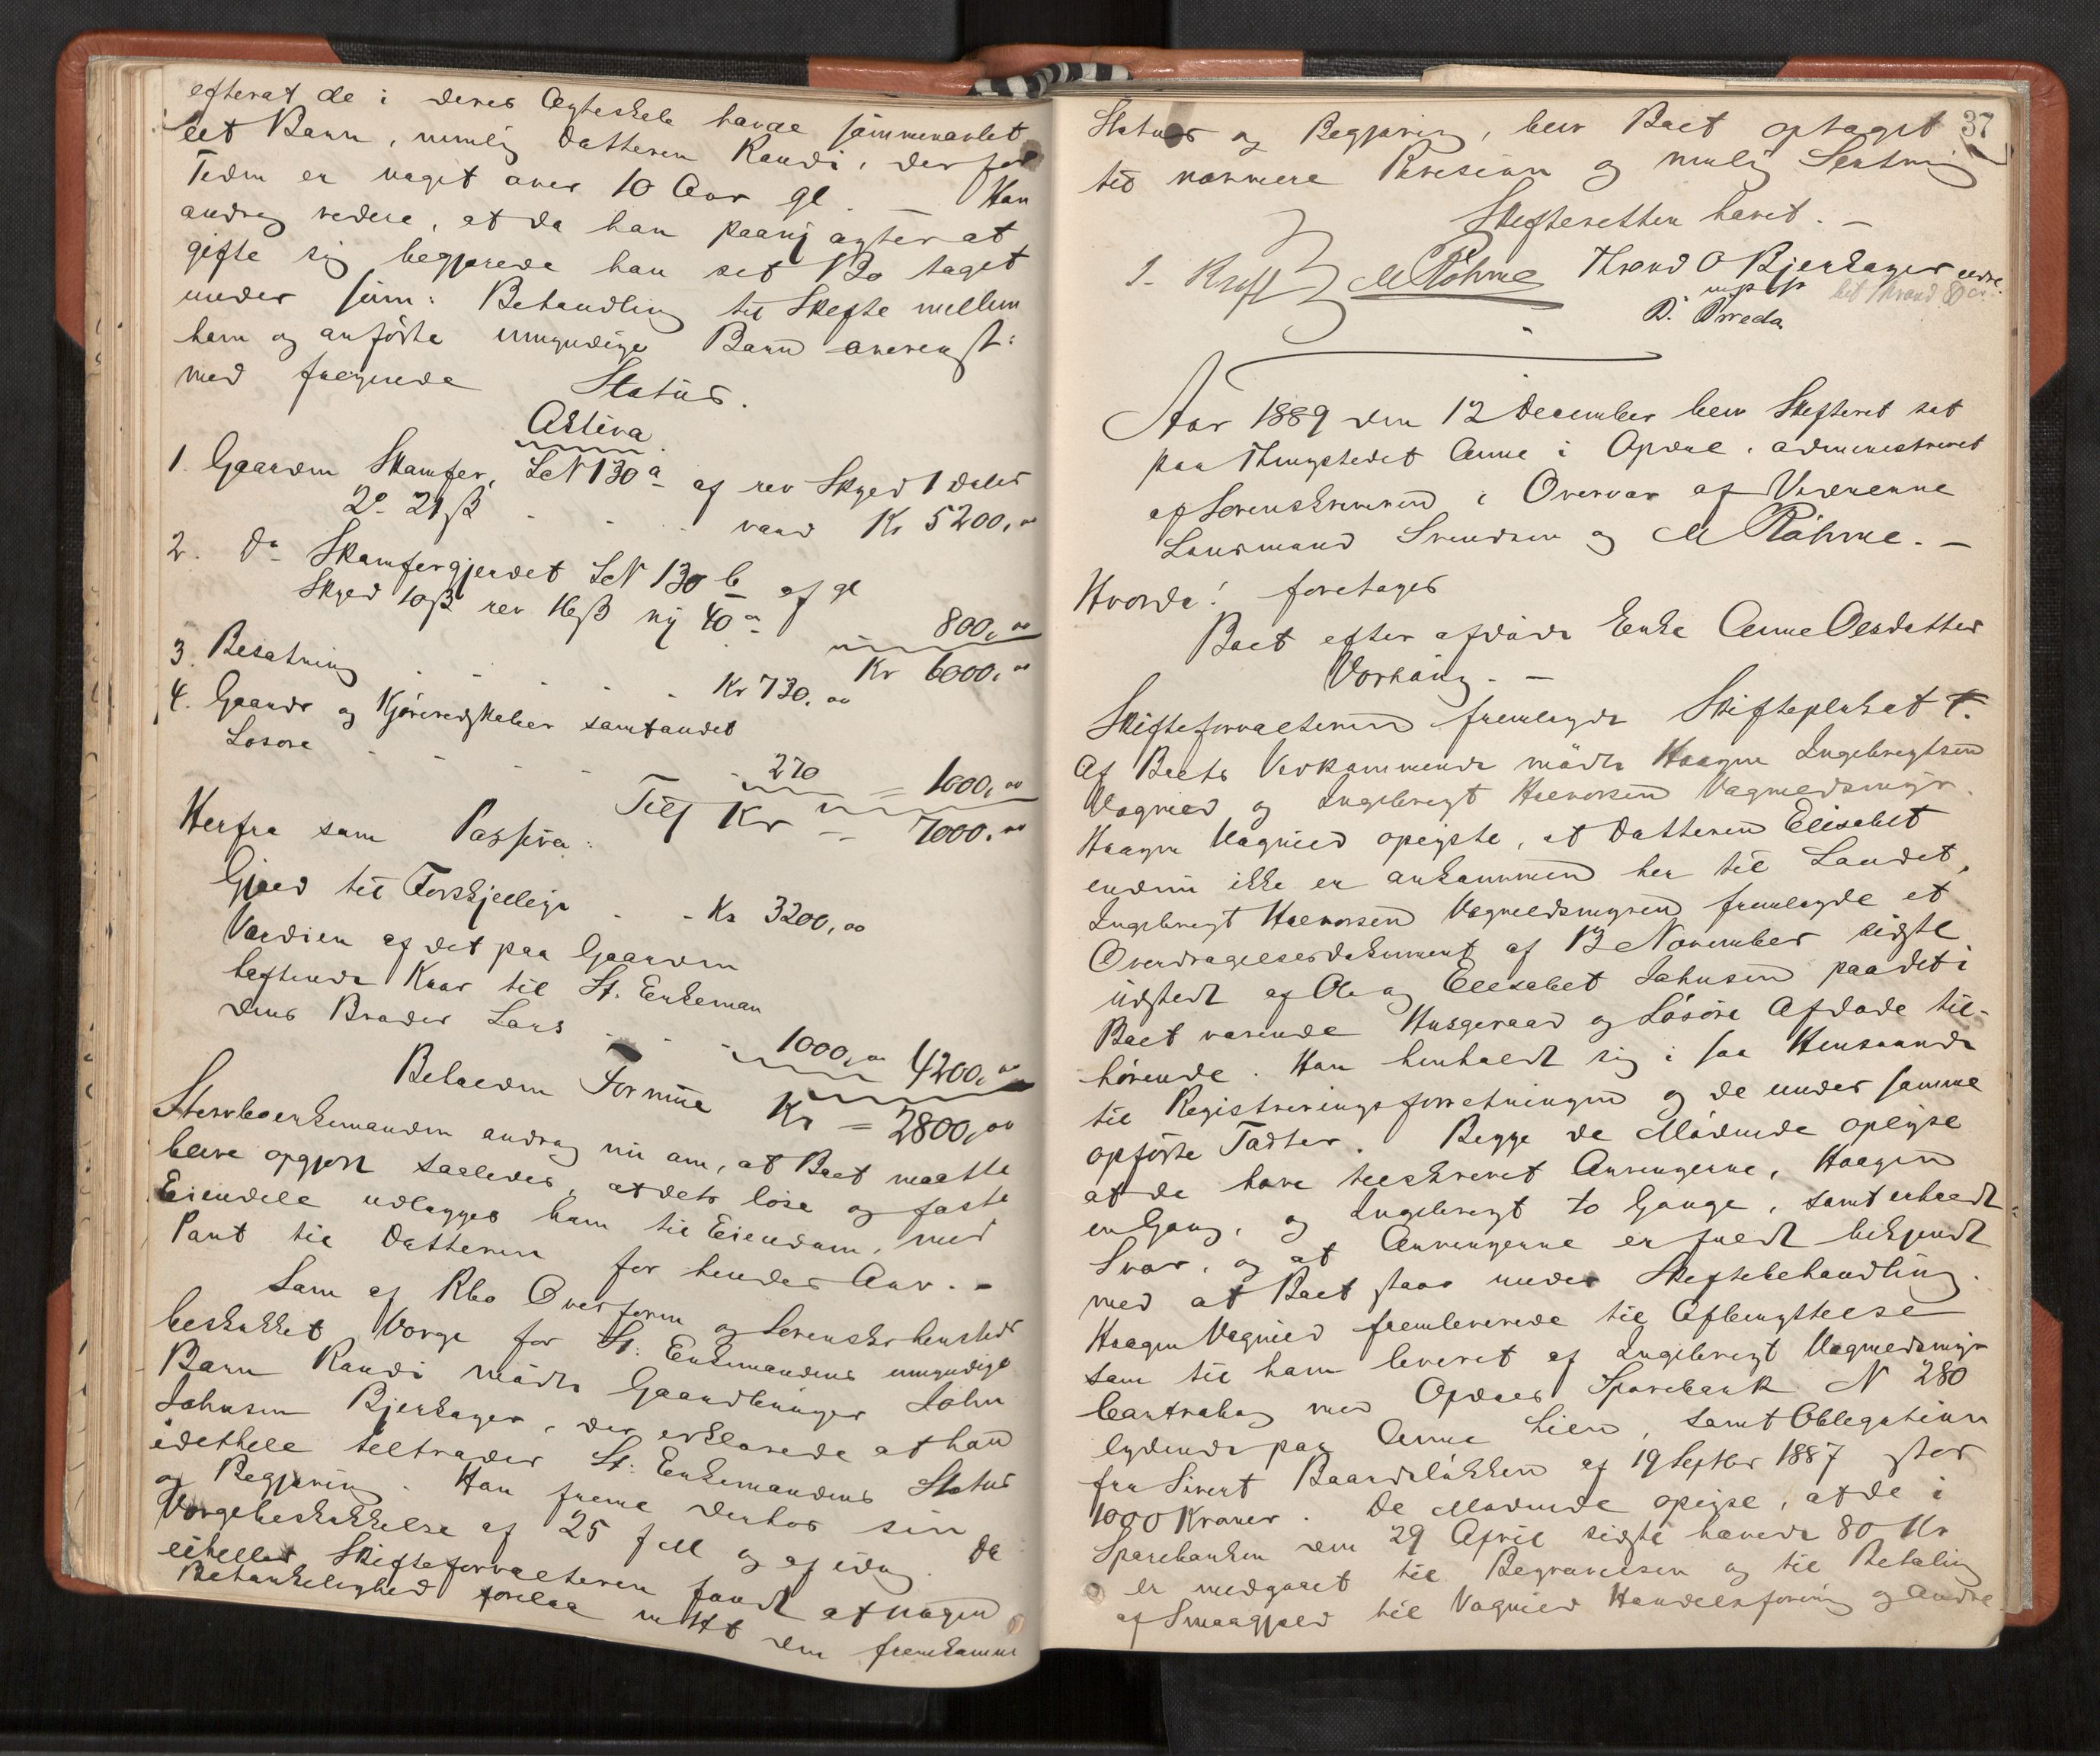 efterat de i deres Ægteskab havde sammenavlet
eet Barn, nemlig Datteren Randi, der for
Tiden er noget over 10 Aar gl. — Han
androg videre, at da han paany agter at
gifte sig begjærede han sit Bo taget
under fum: Behandling til Skifte mellem
ham og anførte umyndige Barn overenst:
med følgende Status.
Aktiva
1. Gaarden Skamfer, LN 130a af rev Skyld 1 Daler
2° 21 ß - - - værd Kr 5200,00
2. Do Skamfergjerdet LN 130b af gl
Skyld 10ß rev 16ß ny 40 ø - 800,00
Kr 6000,00
3. Besætning - - - - - Kr 730,00
4. Gaards og Kjøreredskaber samt andet
Løsøre - - - - 270 = 1000,00
Tils Kr - 7000,00
Herfra som Passiva:
Gjæld til Forskjellige - - Kr 3200,00
Værdien af det paa Gaarden
heftende Kaar til St. Enkeman
dens Broder Lars - - - 1000,00 4200,00
Beholden Formue Kr = 2800,00
Stervboenkemanden androg nu om, at Boet maatte
blive opgjort saaledes, at dets løse og faste
Eiendele udlægges ham til Eiendom, med
Pant til Datteren for hendes Arv. -
Som af Rbo Overform og Sorenskr hersteds
beskikket Værge for St. Enkemandens umyndige
Barn Randi mødte Gaardbruger John
Johnsen Bjerkager, der erklærede at han
idethele tiltræder St: Enkemandens Status
og Begjæring. Han freml derhos sin
Værgebeskikkelse af 25 f M og af idag. Da
eiheller Skifteforvalteren fandt at nogen
Betænkelighed forelaa mod den fremkomne
37
Status og Begjæring, blev Boet optaget
til nærmere Revision og mulig Slutning
Skifteretten hævet. —
M Røhme Thrond O Bjerkager
m p P
Aar 1889 den 12 December blev Skifteret sat
paa Thingstedet Aune i Opdal, administreret
af Sorenskriveren i Overvær af Vidnerne
Lensmand Svendsen og M Røhme. —
Hvorda! foretages
Boet efter afdøde Enke Anne Olsdatter
Vorhaug. —
Skifteforvalteren fremlagde Skifteplakat #.
Af Boets Vedkommende mødte Haagen Ingebrigtsen
Vognild og Ingebrigt Halvorsen Vognildsmyr.
Haagen Vognild oplyste, at Datteren Elisabet
endnu ikke er ankommen her til Landet,
Ingebrigt Halvorsen Vognildsmyren fremlagde et
Overdragelsesdokument af 13 November sidste
udstedt af Ole og Elisabet Johnsen paa det i
Boet værende Husgeraad og Løsøre Afdøde til-
hørende. Han henholdt sig i saa Henseende
til Registreringsforretningen og de under samme
opførte Taxter. Begge de Mødende oplyse
at de have tilskrevet Arvingerne, Haagen
en Gang, og Ingebrigt to Gange, samt erholdt
Svar, og at Arvingerne er fuldt bekjendt
med at Boet staar under Skiftebehandling.
Haagen Vognild fremleverede til Afbenyttelse
som til ham leveret af Ingebrigt Vognildsmyr
Contrabog med Opdals Sparebank N 280
lydende paa Anne Lien, samt Obligation
fra Sivert Baardsløkken af 19 Septbr 1887 stor
1000 Kroner. De Mødende oplyse, at de i
Sparebanken den 29 April sidste hævede 80 Kr
er medgaaet til Begravelsen og til Betaling
af Smaagjæld til Vognild Handelsforening og Andre